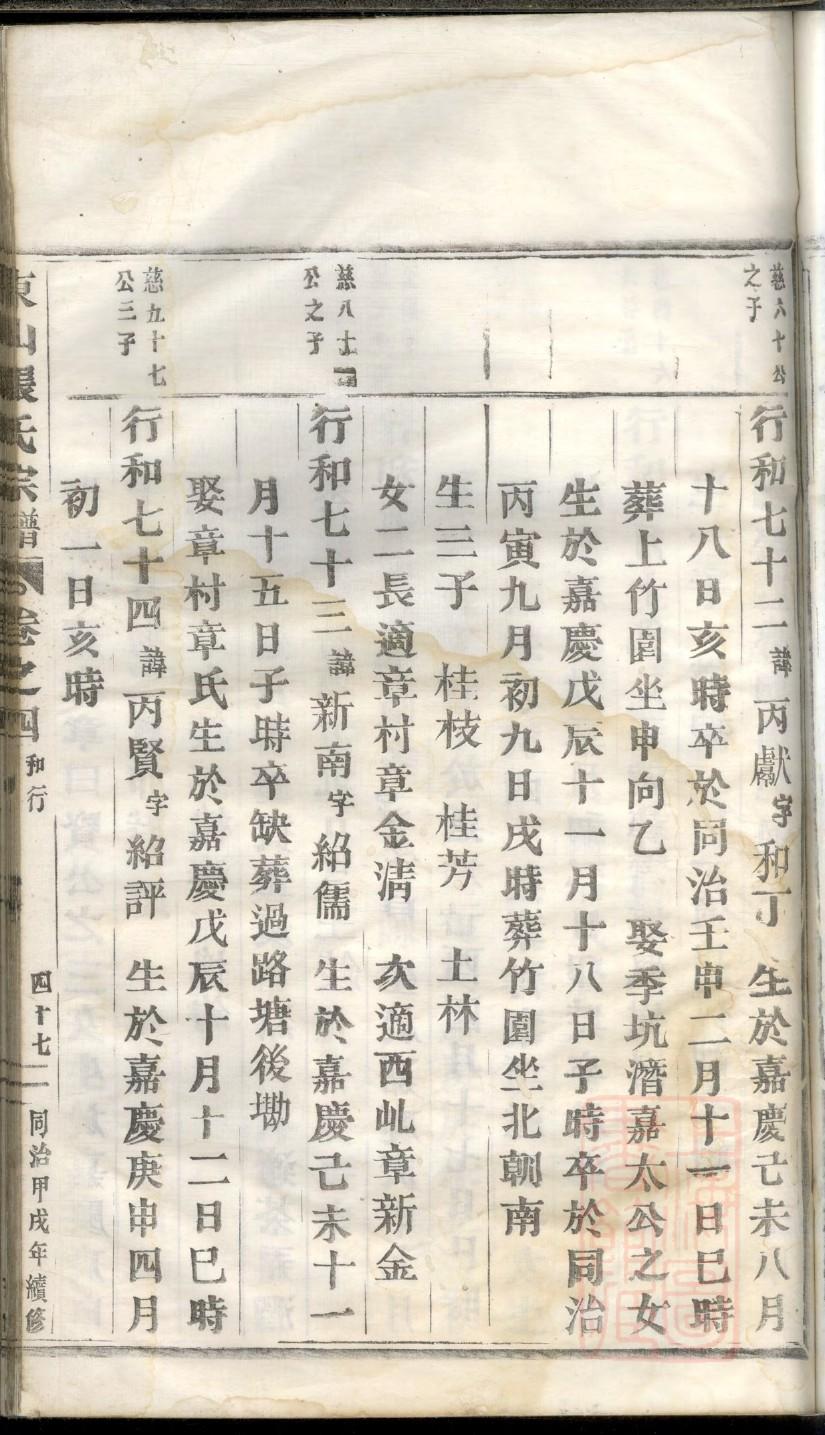 慈六十公
之子
行和七十二諱丙獻字和丁 生於嘉慶己未八月
十八日亥時卒於同治壬申二月十一日巳時
葬上竹園坐申向乙 娶季坑潛嘉太公之女
生於嘉慶戊辰十一月十八日子時卒於同治
丙寅九月初九日戌時葬竹園坐北朝南
生三子 桂枝 桂芳 土林
女二長適章村章金清 次適西乢章新金
慈八十四
公之子
行和七十三諱新南字紹儒 生於嘉慶己未十一
月十五日子時卒缺葬過路塘後塝
娶章村章氏生於嘉慶戊辰十月十二日巳時
慈五十七
公三子
行和七十四諱丙賢字紹評 生於嘉慶庚申四月
初一日亥時
東山張氏宗譜 卷之四 和行 四十七 同治甲戌年續修